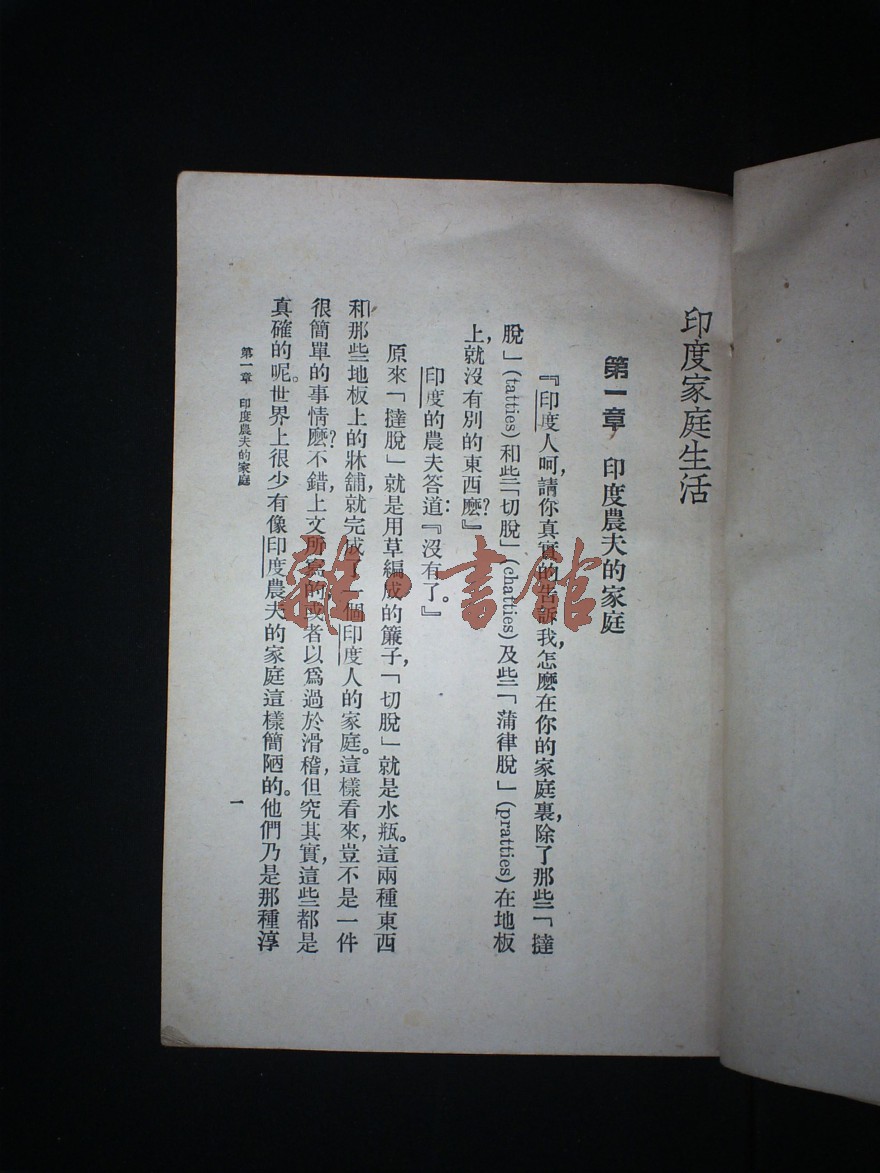 印度家庭生活
第一章 印度農夫的家庭
『印度人呵，請你真實的告訴我，怎麽在你的家庭裏，除了那些「撻
脫」(tatties)和些「切脫」(chatties)及些「蒲律脫」(pratties)在地板
上，就沒有別的東西麽？』
印度的農夫答道：『沒有了。』
原來「撻脫」就是用草編成的簾子，「切脫」就是水瓶。這兩種東西
和那些地板上的牀舖，就完成了一個印度人的家庭。這樣看來，豈不是一件
很簡單的事情麽？不錯，上文所寫的，或者以爲過於滑稽，但究其實，這些都是
真確的呢。世界上很少有像印度農夫的家庭這樣簡陋的。他們乃是那種淳
第一章 印度農夫的家庭
一
雜·書館